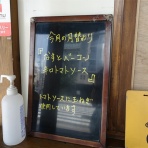 今月の月替わり
なすとベーコン
のトマトソース
トマトソースに玉ねぎ
使用しています